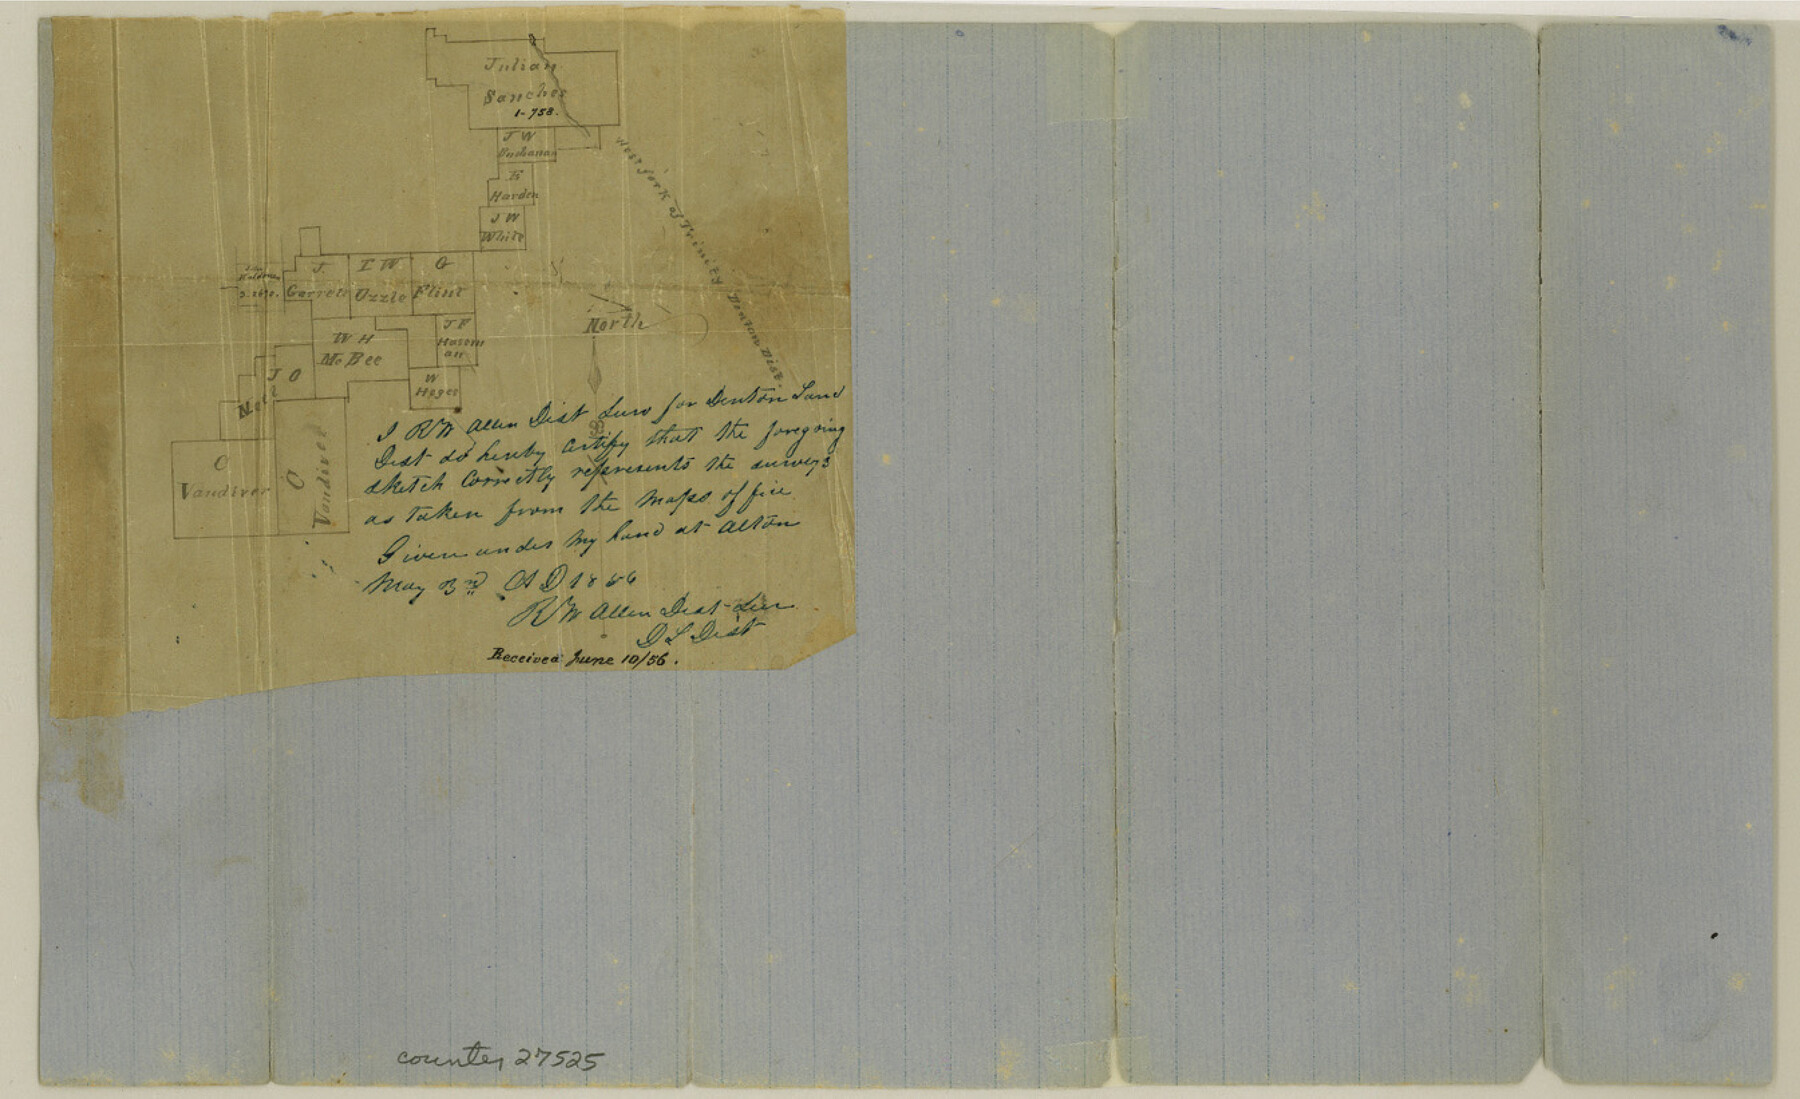 Julian
Sanches
1-758.
J W
Buchanan
West fork of Trinity Denton Dist.
H
Harden
J W
White
J.
Garrett
I W
Ozzle
G
Flint
W H
McBee
J F
Hasem
an
W
Hoges
North
J O
Neil
O
Vandiver
O
Vandiver
I R W Allen Dist Surv for Denton Land
Dist do hereby certify that the foregoing
sketch correctly represents the surveys
as taken from the Maps of fice
Given under my hand at Alton
May 3rd A D 1856
R W Allen Dist Sur
D L Dist
Received June 10/56.
counter 27525